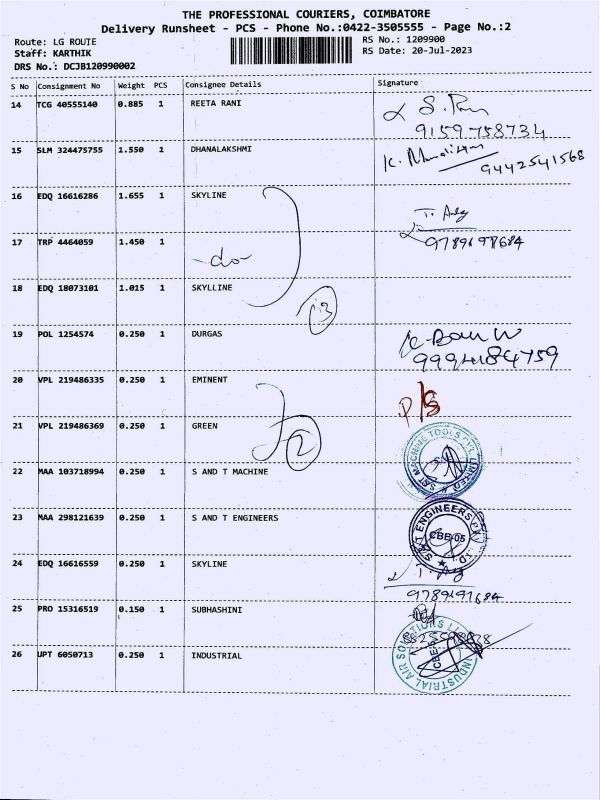 THE PROFESSIONAL COURIERS, COIMBATORE
Delivery Runsheet - PCS - Phone No.:0422-3505555 - Page No.:2
Route: LG ROUTE
Staff: KARTHIK
DRS No.: DCJB120990002
RS No.: 1209900
RS Date: 20-Jul-2023
S No Consignment No Weight PCS Consignee Details Signature
14 TCG 40555140 0.885 1 REETA RANI
9159758734
15 SLM 324475755 1.550 1 DHANALAKSHMI
9442541568
16 EDQ 16616286 1.655 1 SKYLINE
17 TRP 4464059 1.450 1 -do-
18 EDQ 18073101 1.015 1 SKYLLINE
19 POL 1254574 0.250 1 DURGAS
20 VPL 219486335 0.250 1 EMINENT
21 VPL 219486369 0.250 1 GREEN
2
S&T MACHINE TOOLS PVT LIMITED
22 MAA 103718994 0.250 1 S AND T MACHINE
23 MAA 298121639 0.250 1 S AND T ENGINEERS
S&T ENGINEERS P LTD.
CBE-05
24 EDQ 16616559 0.250 1 SKYLINE
25 PRO 15316519 0.150 1 SUBHASHINI
26 UPT 6050713 0.250 1 INDUSTRIAL
INDUSTRIAL AIR SOLUTIONS